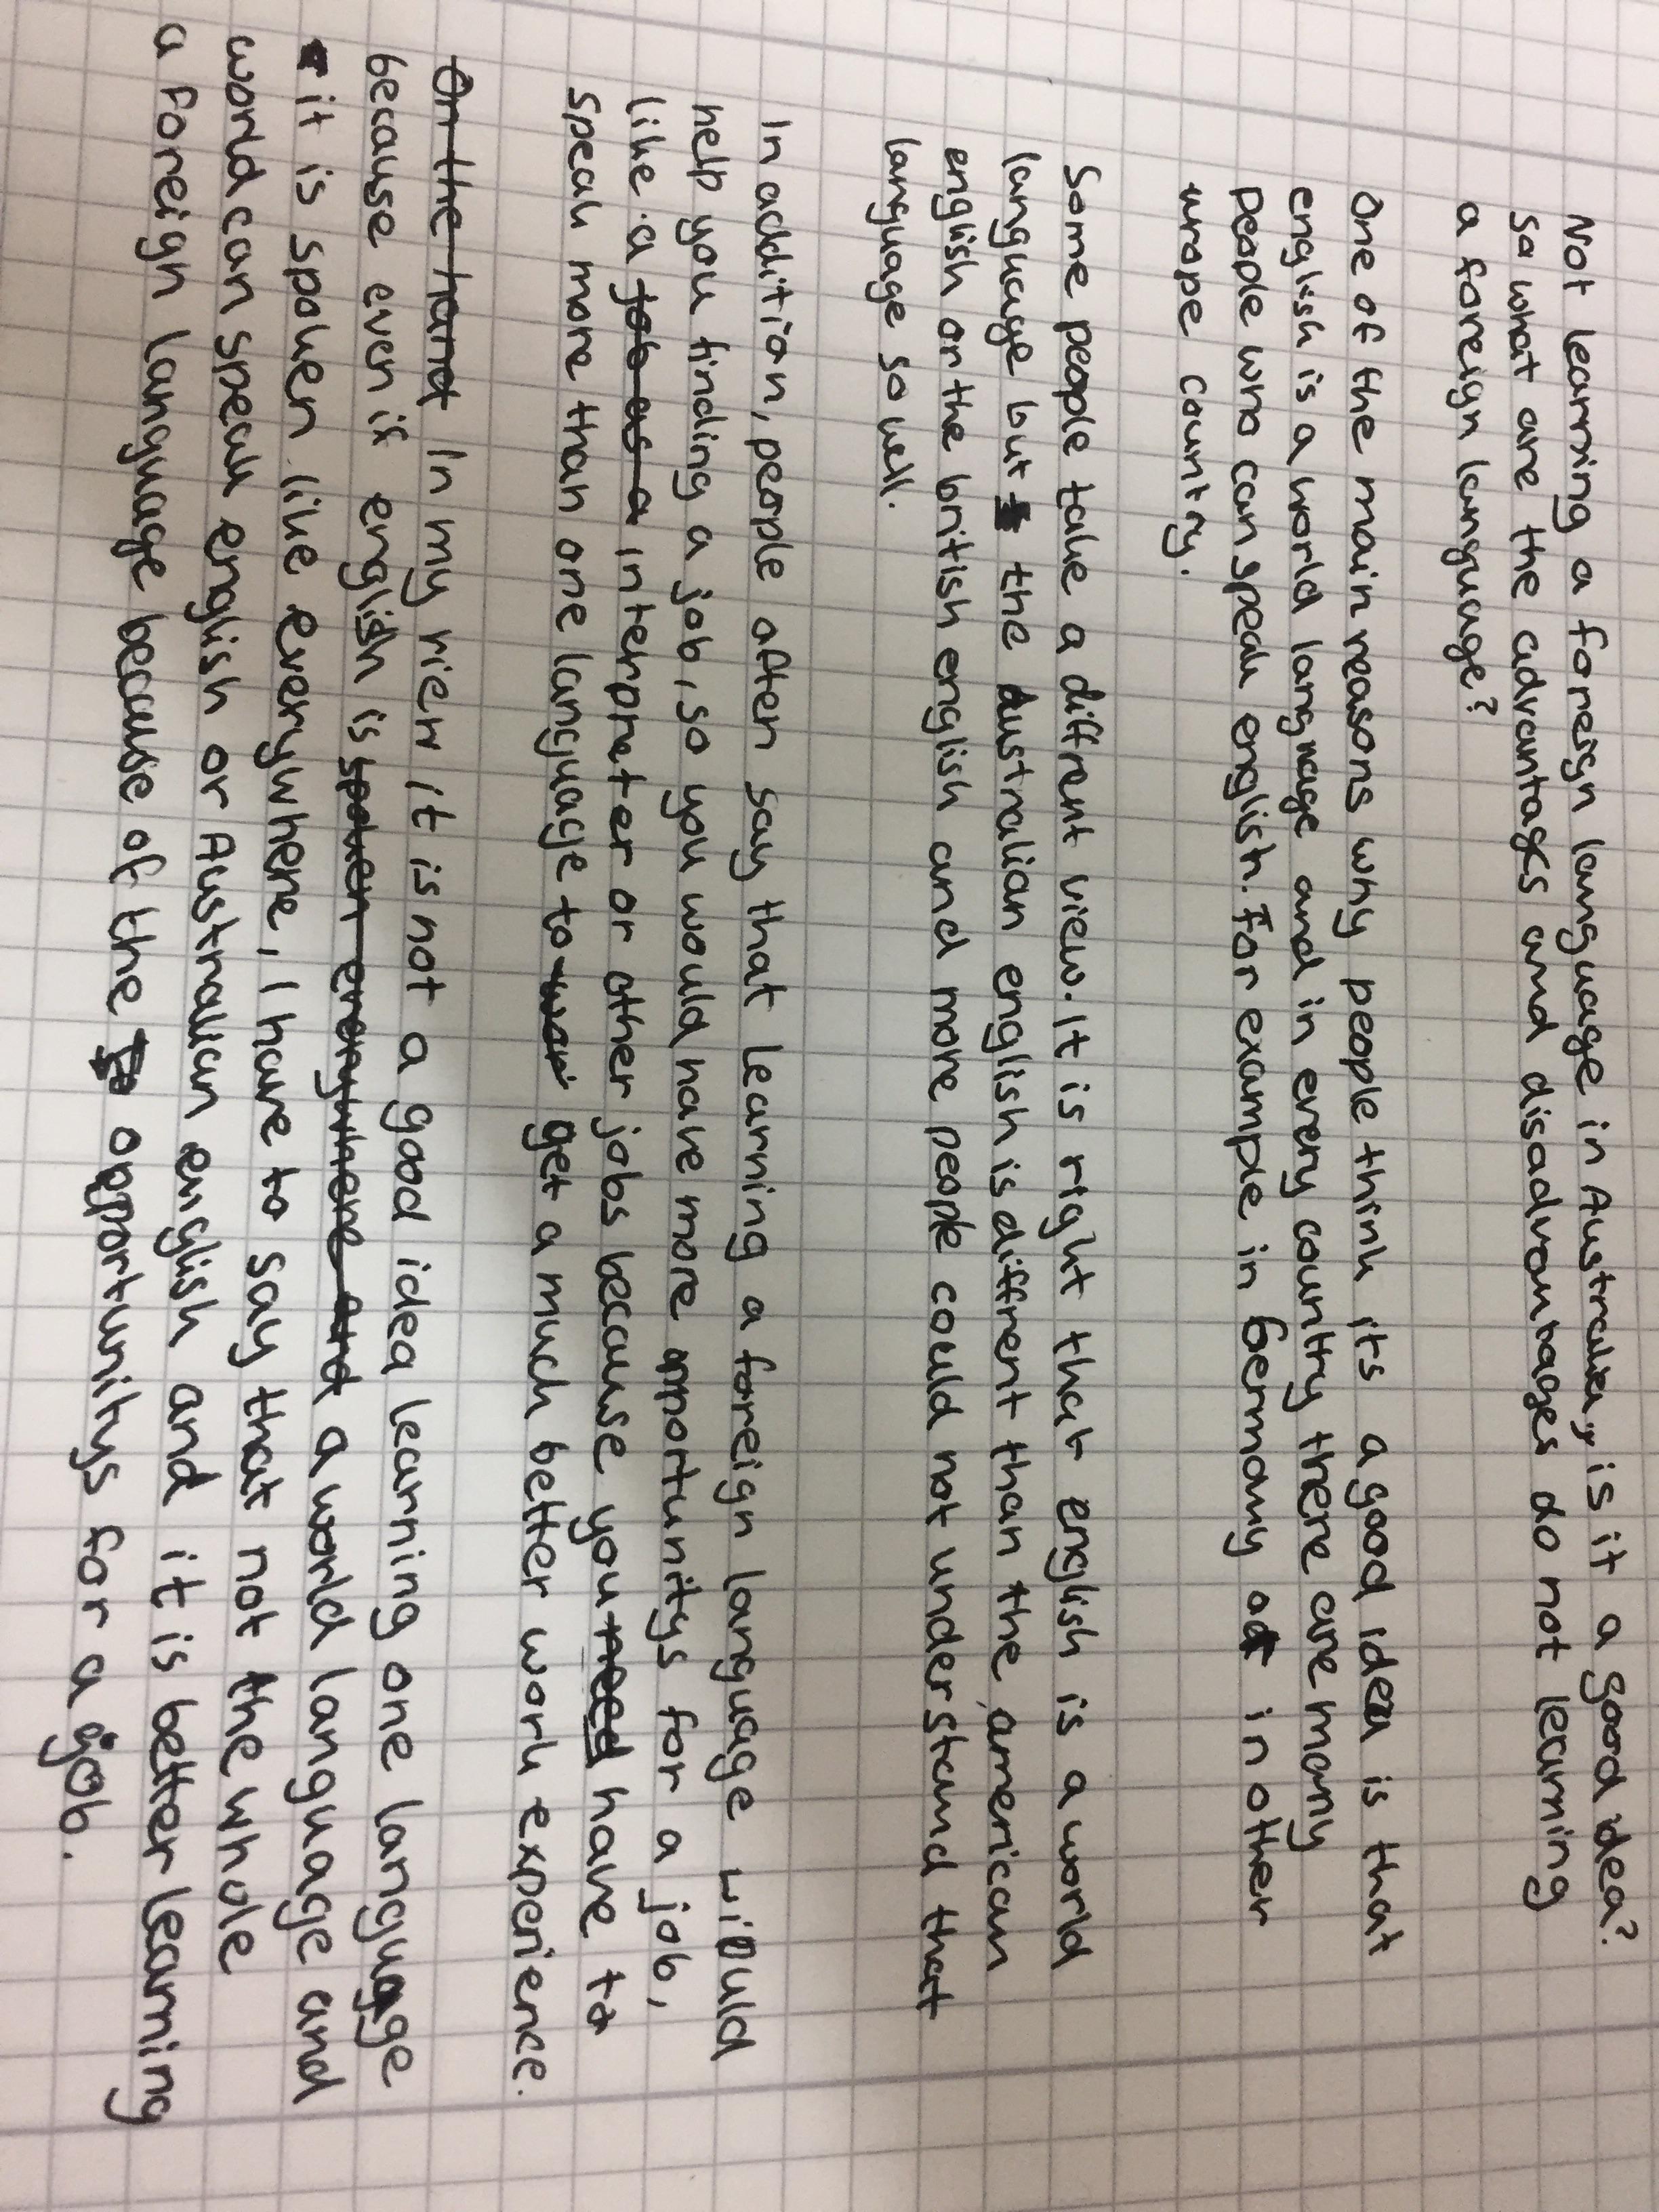 Not learning a foreign language in Australia, is it a good idea?
So what are the advantages and disadvantages do not learning
a foreign language?
One of the main reasons why people think its a good idea is that
english is a world language and in every country there are many
people who can speak english. For example in Germany or in other
europe country.
Some people take a diffrent view. It is right that english is a world
language but the Australian english is diffrent than the american
english or the british english and more people could not understand that
language so well.
In addition, people often say that learning a foreign language would
help you finding a job, so you would have more opportunitys for a job,
like a job as a interpreter or other jobs because you need have to
speak more than one language to get a much better work experience.
On the hand In my view it is not a good idea learning one language
because even if english is spoken everywhere and a world language and
it is spoken like everywhere, I have to say that not the whole
world can speak english or Australian english and it is better learning
a foreign language because of the opportunitys for a job.